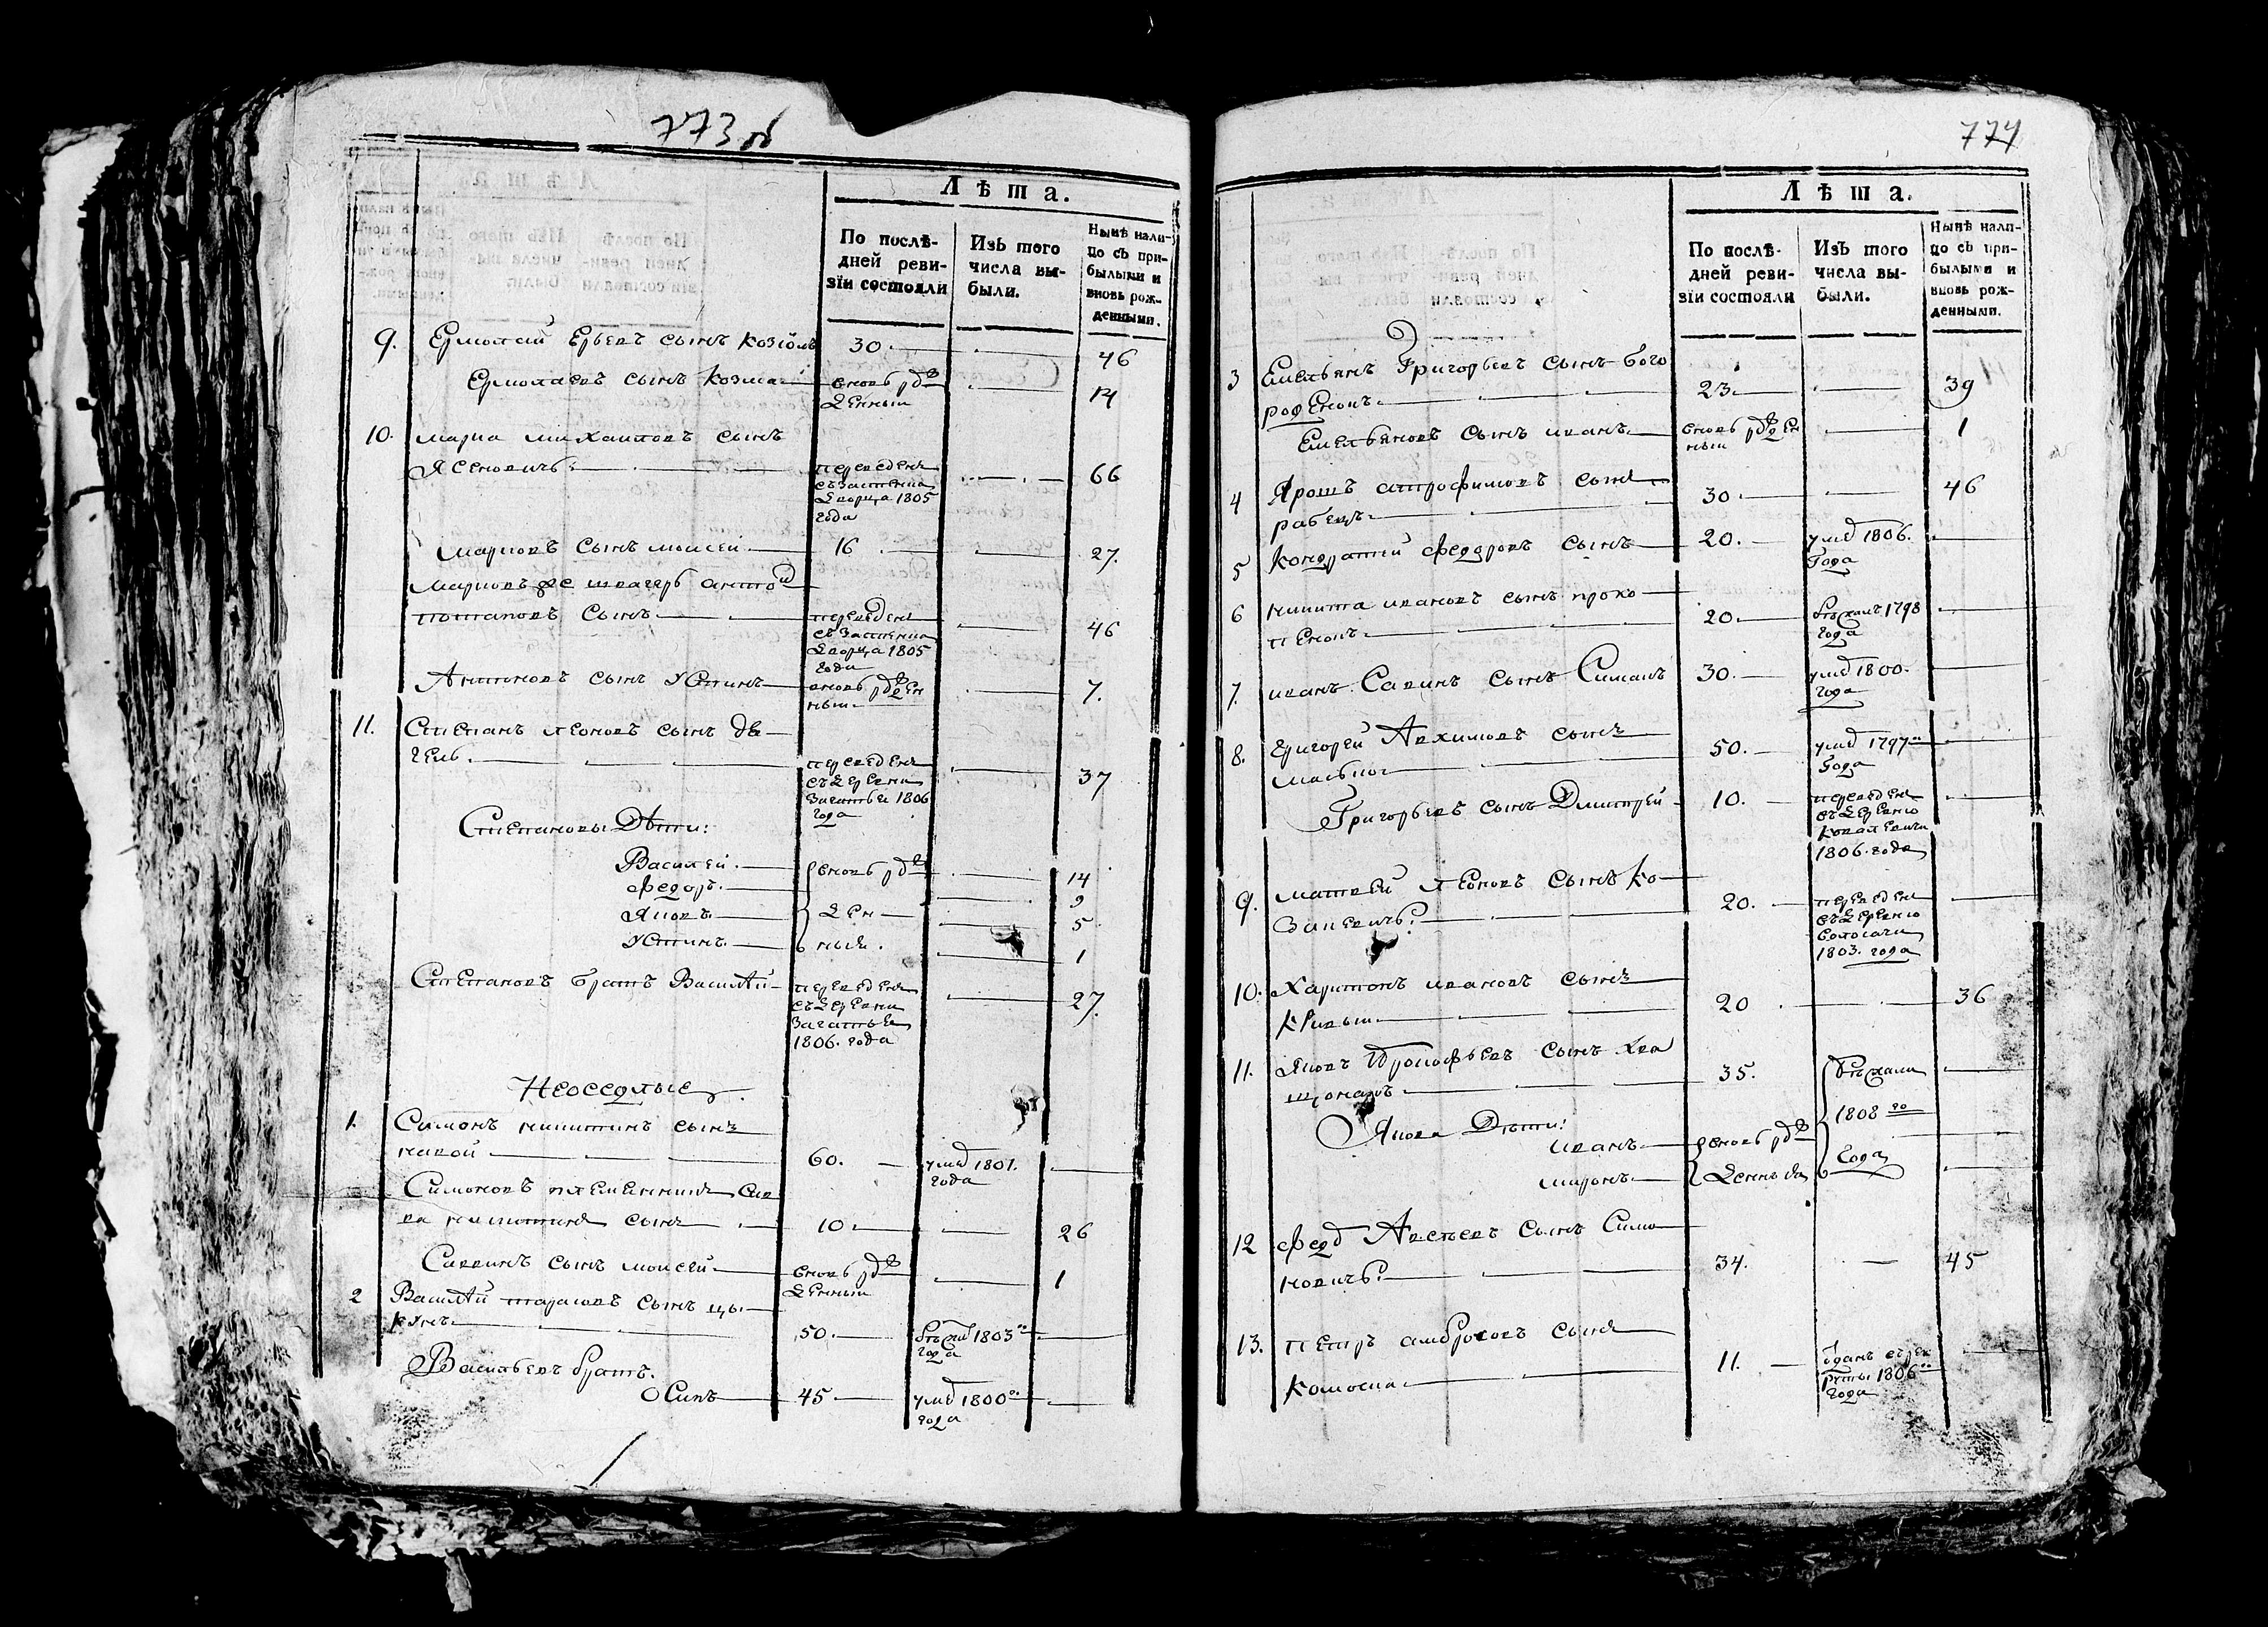 773
Лѣта.
По послѣ-
дней реви-
зіи состояли
Изъ того
числа вы-
были.
Нынѣ нали-
цо съ при-
былыми и
вновь рож-
денными.
9. Ермолай Юрьевъ сынъ козіолъ 30. 46
Ермолаевъ сынъ козма вновь рож
денный 14
10. марка михаиловъ сынъ
Ясеновичъ. переведенъ 66
съ застенка
дворца 1805
года
Марковъ сынъ моисей 16 27.
Марковъ же швагеръ антон
потаповъ сынъ переведенъ 46
съ застенка
дворца 1805
года
Антоновъ сынъ Устинъ вновь рожден
ный 7.
11. Степанъ леоновъ сынъ де
гель. переведенъ 37
съ деревни
Загатье 1806
года
Степановы Дѣти:
Василей. вновь рож 14
федоръ. 9
Яковъ ден 5
Устинъ. ныя. 1
Степановъ братъ Василѣй переведенъ 27.
съ деревни
Загатья
1806. года
Неоседлые
1. Симонъ никитинъ сынъ
60. умер 1801.
года
Симоновъ племенникъ Сав
ка никитинъ сынъ 10. 26
Саввинъ сынъ моисей вновь рож
денный 1
2 Василѣй тарасовъ сынъ цы
кунъ 50. 1803го
года
Васильевъ братъ.
Осипъ 45 умер 1800го
года
774
Лѣта.
По послѣ-
дней реви-
зіи состояли
Изъ того
числа вы-
были.
Нынѣ нали-
цо съ при-
былыми и
вновь рож-
денными.
3 Емельянъ Григорьевъ сынъ бого
роденокъ. 23. 39
Емельяновъ сынъ иванъ вновь рожден
ный 1
4 Ярошъ атрофимовъ сынъ
рабецъ. 30. 46
5 кондратий федоровъ сынъ 20. умер 1806.
года
6 никита ивановъ сынъ проко
пенокъ. 20. бежалъ 1798
года
7. иванъ Савинъ сынъ Симакъ 30. умер 1800.
года
8. Григорей Авхимовъ сынъ
50. умер 1797го
года
Григорьевъ сынъ Дмитрей 10. переведенъ
въ деревню
Ковалевичи
1806. года
9. матвей леоновъ сынъ Ко
закевичъ. 20. переведенъ
въ деревню
Волосачи
1803. года
10. Харитонъ ивановъ сынъ
кривый 20 36
11. Яковъ Прокофьевъ сынъ хва
щонакъ 35. бежали
Якова Дѣти: 1808го
иванъ вновь рож
миронъ денные года
12 федор Авсеевъ сынъ Симо
новичъ. 34. 45
13. петръ амбросовъ сынъ
комоска 11. отданъ въ рек
руты 1806го
года